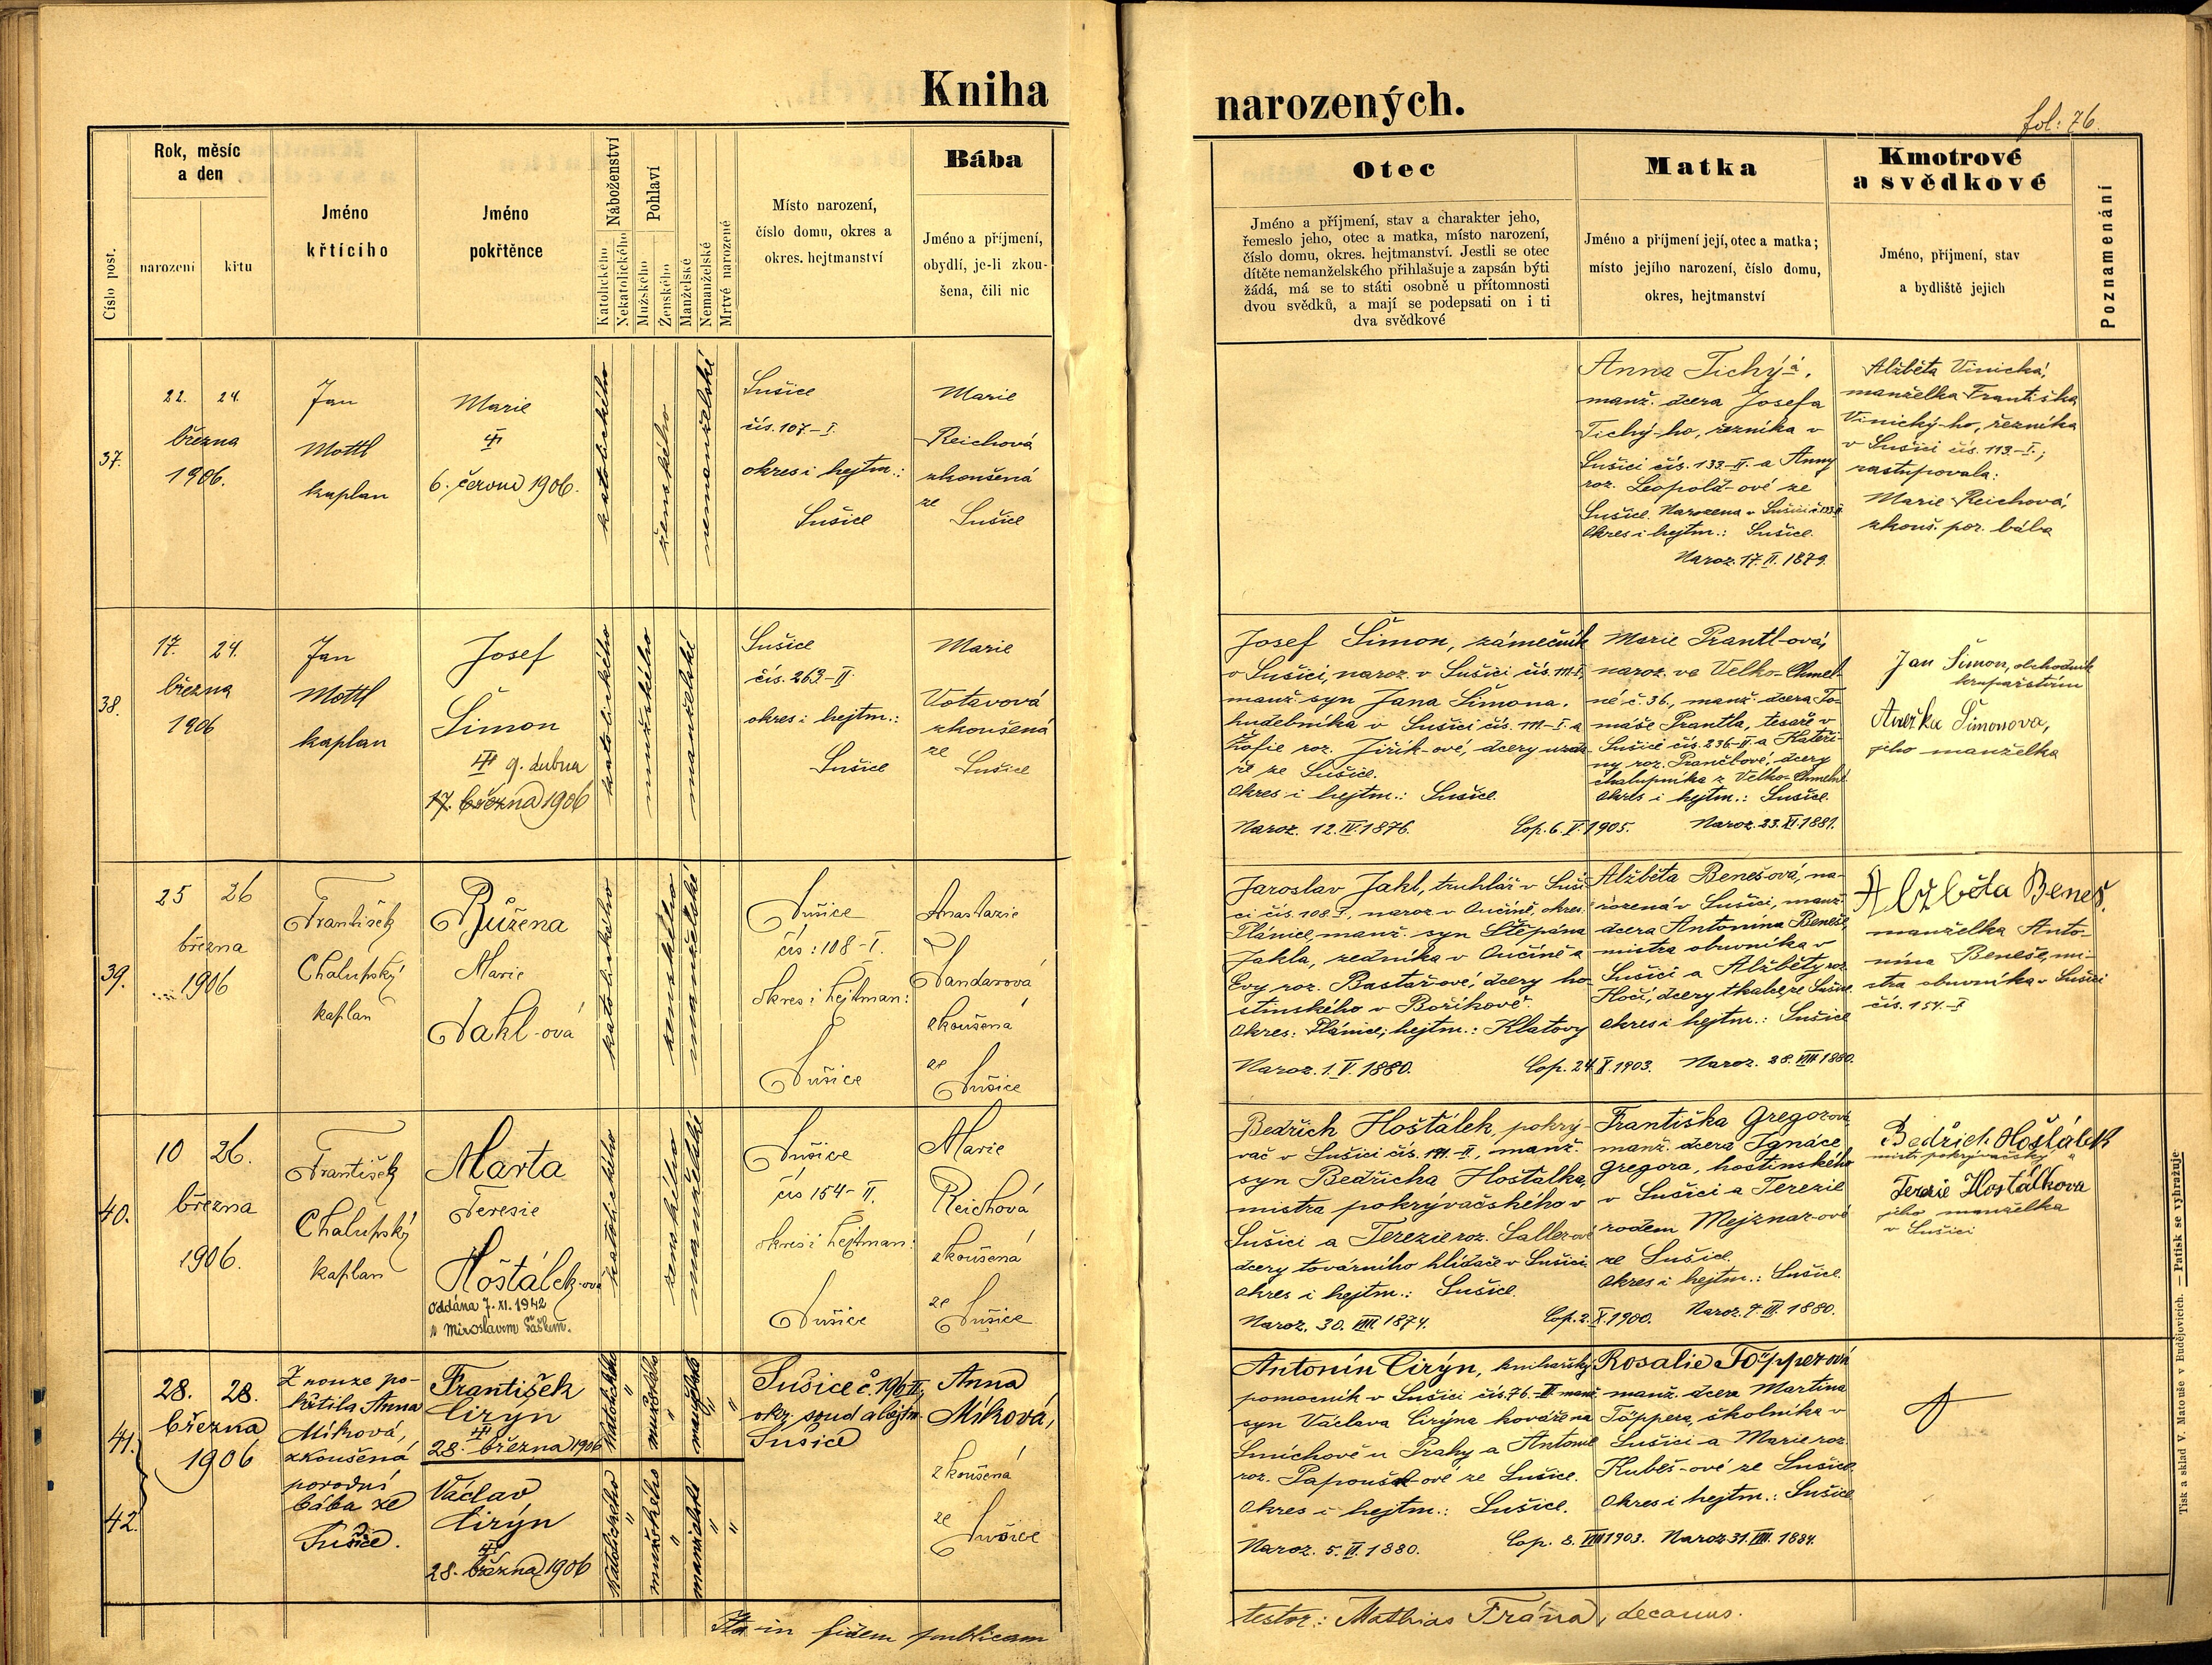 Kniha
narozených.
fol: 76.
Číslo post.
Rok, měsíc
a den
narození
křtu
Jméno
křtícího
Jméno
pokřtěnce
Náboženství
Katolického
Nekatolického
Pohlaví
Mužského
Ženského
Manželské
Nemanželské
Mrtvě narozené
Místo narození,
číslo domu, okres a
okres. hejtmanství
Bába
Jméno a příjmení,
obydlí, je-li zkou-
šena, čili nic
Otec
Jméno a příjmení, stav a charakter jeho,
řemeslo jeho, otec a matka, místo narození,
číslo domu, okres. hejtmanství. Jestli se otec
dítěte nemanželského přihlašuje a zapsán býti
žádá, má se to státi osobně u přítomnosti
dvou svědků, a mají se podepsati on i ti
dva svědkové
Matka
Jméno a příjmení její, otec a matka;
místo jejího narození, číslo domu,
okres, hejtmanství
Kmotrové
a svědkové
Jméno, příjmení, stav
a bydliště jejich
Poznamenání
37.
22. 24.
března
1906.
Jan
Mottl
kaplan
Marie
6. června 1906.
katolického
ženského
nemanželské
Sušice
čís. 107.-I.
okres i hejtm.:
Sušice
Marie
Reichová
zkoušená
ze
Sušice
Anna Tichý-á,
manž. dcera Josefa
Tichý-ho, řezníka v
Sušici čís. 133-II. a Anny
roz. Leopold-ové ze
Sušice. Narozena v Sušici č. 133 II
Okres i hejtm.: Sušice.
Naroz. 17. II. 1879.
Alžběta Vinická,
manželka Františka
Vinický-ho, řezníka
v Sušici čís. 113.-I.;
zastupovala:
Marie Reichová,
zkouš. por. bába
38.
17. 24.
března
1906
Jan
Mottl
kaplan
Josef
Šimon
9. dubna
17. března 1906
katolického
mužského
manželské
Sušice
čís. 263.-II.
okres i hejtm.:
Sušice
Marie
Votavová
zkoušená
ze
Sušice
Josef Šimon, zámečník
v Sušici, naroz. v Sušici čís. 111-I.
manž. syn Jana Šimona,
hudebníka v Sušici čís. 111-I. a
Žofie roz. Jiřík-ové, dcery
ře ze Sušice.
Okres i hejtm.: Sušice.
Naroz. 12. IV. 1876.
Cop. 6. V. 1905.
Marie Prantl-ová,
naroz. ve Velko-Chmel-
né č. 36., manž. dcera To-
máše Prantla, tesaře v
Sušici čís. 236-II. a Kateři-
ny roz. Prančlové, dcery
chalupníka z Velko-Chmelné
Okres i hejtm.: Sušice.
Naroz. 23. XI. 1881.
Jan Šimon, obchodník
krupařstvím
Anežka Šimonova,
jeho manželka
39.
25 26
března
1906
František
Chalupský
kaplan
Růžena
Marie
Jakl-ová
katolického
ženského
manželské
Sušice
čís: 108-I.
okres i hejtman:
Sušice
Anastazie
Sandanová
zkoušená
ze
Sušice
Jaroslav Jakl, truhlář v Suši-
ci čís. 108-I., naroz. v Oučíně, okres.
Plánice, manž. syn Štěpána
Jakla, zedníka v Oučíně a
Evy roz. Bastař-ové, dcery ho-
stinského v Bořikově.
Okres: Plánice; hejtm.: Klatovy
Naroz. 1. V. 1880.
Cop. 24. X. 1903.
Alžběta Beneš-ová, na-
rozená v Sušici, manž.
dcera Antonína Beneše,
mistra obuvníka v
Sušici a Alžběty roz.
Hočí, dcery tkalce, ze Sušice.
Okres i hejtm.: Sušice
Naroz. 28. VIII. 1880.
Alžběta Beneš.
manželka Anto-
nína Beneše, mi-
stra obuvníka v Sušici
čís. 154.-I
40.
10 26.
března
1906.
František
Chalupský
kaplan
Marta
Teresie
Hošťálek-ová
oddána 7. XI. 1942
s Miroslavem Šaškem.
katolického
ženského
manželské
Sušice
čís 154-II.
okres i hejtman:
Sušice
Marie
Reichová
zkoušená
ze
Sušice
Bedřich Hošťálek, pokrý-
vač v Sušici čís. 171.-II., manž.
syn Bedřicha Hošťálka,
mistra pokrývačského v
Sušici a Terezie roz. Saller-ové
dcery továrního hlídače v Sušici.
Okres i hejtm.: Sušice.
Naroz. 30. VIII. 1874.
Cop. 2. X. 1900.
Františka Gregorová
manž. dcera Ignáce
Gregora, hostinského
v Sušici a Terezie
rodem Mejznar-ové
ze Sušice.
Okres i hejtm.: Sušice.
Naroz. 7. III. 1880.
Bedřich Hošťálek
mistr pokrývačský a
Terezie Hostálkova
jeho manželka
v Sušici
41.
42.
28. 28.
března
1906
Z nouze po-
křtila Anna
Míková,
zkoušená
porodní
bába ze
Sušice.
František
Cirýn
28. března 1906
Václav
Cirýn
28. března 1906
Katolického
mužského
manželské
Katolického
mužského
manželské
Sušice č. 196 II,
okr. soud a hejtm.
Sušice
Anna
Míková,
zkoušená
ze
Sušice
Antonín Cirýn, knihařský
pomocník v Sušici čís. 76.-II. manž.
syn Václava Cirýna kováře na
Smíchově u Prahy a Antonie
roz. Papoušk-ové ze Sušice.
Okres i hejtm.: Sušice.
Naroz. 5. II. 1880.
Cop. 8. VIII 1903.
Rosalie Töpperová
manž. dcera Martina
Töppera, školníka v
Sušici a Marie roz.
Kubeš-ové ze Sušice
Okres i hejtm.: Sušice
Naroz. 31. VIII. 1884.
Ita in fidem publicam
testor: Mathias Frána, decanus.
Tisk a sklad V. Matouše v Budějovicích. — Patisk se vyhražuje